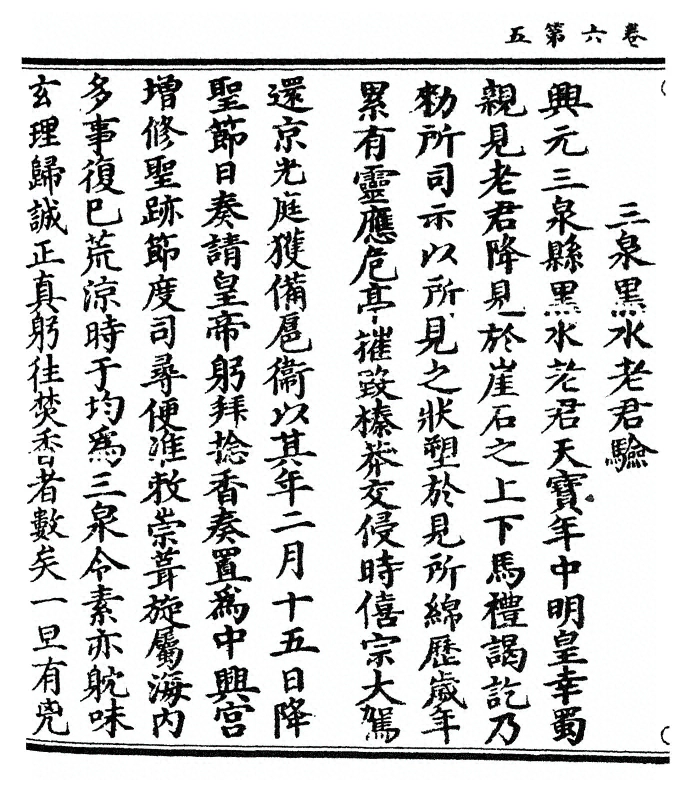 卷六第五
三泉黑水老君驗
興元三泉縣黑水老君天寶年中明皇幸蜀
親見老君降見於崖石之上下馬禮謁訖乃
勑所司示以所見之狀塑於見所綿歷歲年
累有靈應危亭摧毀榛莽交侵時僖宗大駕
還京光庭獲備扈衞以其年二月十五日降
聖節日奏請皇帝躬拜捻香奏置爲中興宮
增修聖跡節度司尋便准敕崇葺旋屬海內
多事復已荒涼時于均爲三泉令素亦躭味
玄理歸誠正真躬往焚香者數矣一旦有兇